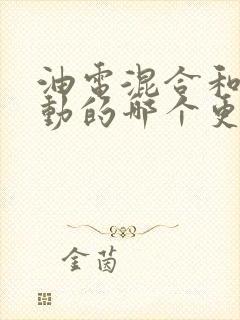 油電混合和
動的哪个更
金茵